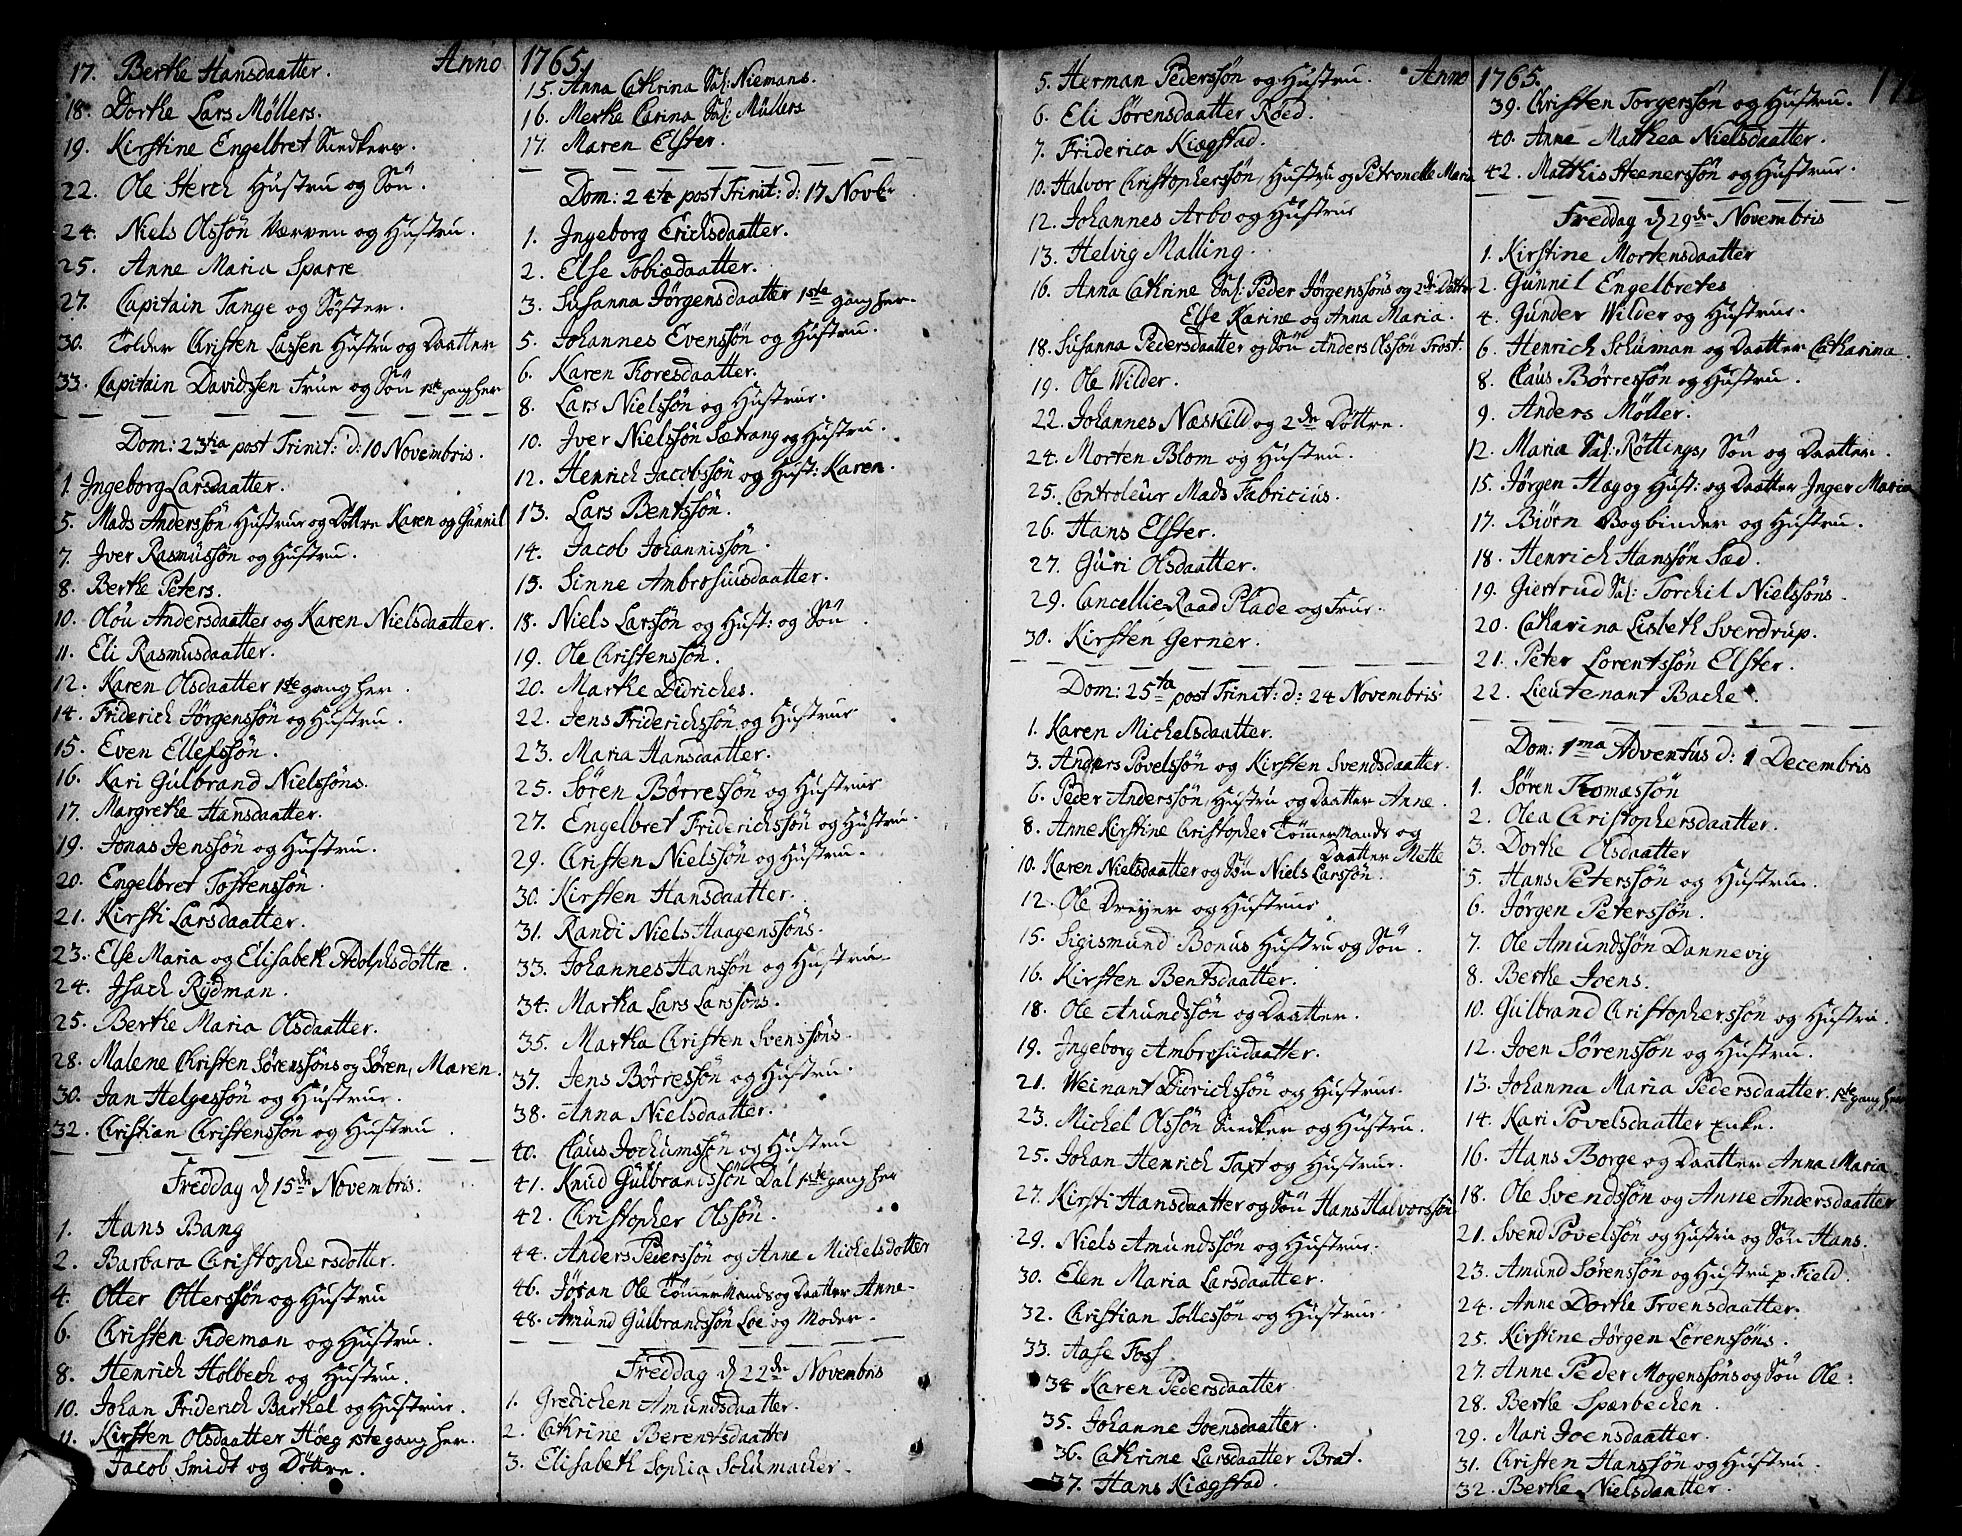 Anno 1765.
17. Berthe Hansdaatter.
18. Dorthe Lars Møllers.
19. Kirstine Engelbret Snedkers.
22. Ole Sterch Hustru og Søn.
24. Niels Olssøn Værven og Hustru.
25. Anne Maria Sparre
27. Capitain Tange og Søster.
30. Tolder Christen Lassen Hustru og Daatter
33. Capitain Davidssen Frue og Søn 1ste gang her
Dom: 23tia post Trinit: d: 10 Novembris.
1. Ingeborg Larsdaatter.
5. Mads Anderssøn, Hustrue og Døttre Karen og Gunnil
7. Iver Rasmussøn og Hustru.
8. Berthe Peters.
10. Olou Andersdaatter og Karen Nielsdaatter.
11. Eli Rasmusdaatter.
12. Karen Olsdaatter 1ste gang her.
14. Friderich Jørgenssøn og Hustru.
15. Even Ellefssøn.
16. Kari Gulbrand Nielssøns.
17. Margrethe Hansdaatter.
19. Jonas Jenssøn og Hustru.
20. Engelbret Tostenssøn.
21. Kirsti Larsdaatter.
23. Else Maria og Elisabeth Adolphsdøttre.
24. Isach Rydman.
25. Berthe Maria Olsdaatter.
28. Malene Christen Sørenssøns og Søren, Maren.
30. Jan Helgessøn og Hustrue.
32. Christian Christenssøn og Hustru.
Freddag d 15de Novembris.
1. Hans Bang
2. Barbara Christophersdotter.
4. Otter Otterssøn og Hustru
6. Christen Tideman og Hustru.
8. Henrich Holbech og Hustru.
10. Johan Friderich Barthel og Hustrue.
11. Kirsten Olsdaatter Høeg 1ste gang her.
Jacob Smidt og Døttre.
15. Anna Cathrina Sal: Niemans.
16. Merthe Carina Sal: Müllers
17. Maren Elster.
Dom: 24ta post Trinit: d: 17 Novbr
1. Ingeborg Erichsdaatter.
2. Else Tobiædaatter.
3. Susanna Jørgensdaatter 1ste gang her.
5. Johannes Evenssøn og Hustru.
6. Karen Toresdaatter.
8. Lars Nielssøn og Hustrue.
10. Iver Nielssøn Sætrang og Hustru.
12. Henrich Jacobssøn og Hust: Karen.
13. Lars Bentssøn.
14. Jacob Johannissøn.
15. Sinne Ambrosiusdaatter.
18. Niels Larssøn og Hust: og Søn
19. Ole Christenssøn.
20. Marthe Didriches.
22. Jens Friderichssøn og Hustrue
23. Maria Hansdaatter.
25. Søren Børressøn og Hustrue
27. Engelbret Friderichssøn og Hustru.
29. Christen Nielssøn og Hustru.
30. Kirsten Hansdaatter.
31. Randi Niels Haagenssøns.
33. Johannes Hanssøn og Hustru
34. Martha Lars Larssøns.
35. Martha Christen Svenssøns.
37. Jens Børressøn og Hustru.
38. Anna Nielsdaatter.
40. Claus Jochumssøn og Hustru
41. Knud Gulbrandssøn Dal 1ste gang her
42. Christopher Olssøn.
44. Anders Pederssøn og Anne Michelsdotter
46. Johan Ole Tømmermands og Daatter Anne.
48. Amund Gulbrandssøn Loe og Moder.
Freddag d 22de Novembris
1. Gredichen Amundsdaatter.
2. Cathrine Berentsdaatter
3. Elisabeth Sophia Schumacher.
Anno 1765.
5. Herman Pederssøn og Hustru.
6. Eli Sørensdaatter Røed.
7. Friderica Kiægstad.
10. Halvor Christopherssøn, Hustru og Petronelle Maria
12. Johannes Arbo og Hustrue
13. Helvig Malling.
16. Anna Cathrine Sal: Peder Jørgenssøns og 2de Døttre
Else Karine og Anna Maria.
18. Susanna Pedersdaatter og Søn Anders Olssøn Frost.
19. Ole Wilder.
22. Johannes Næskild og 2de Døttre.
24. Morten Blom og Hustru.
25. Controleur Mads Fabricius.
26. Hans Elster.
27. Guri Olsdaatter.
29. Cancellie Raad Plade og Frue.
30. Kirsten Gerner.
Dom: 25ta post Trinit: d: 24 Novembris
1. Karen Michelsdaatter.
3. Anders Povelssøn og Kirsten Svendsdaatter.
6. Peder Anderssøn, Hustru og Daatter Anne.
8. Anne Kirstine Christopher Tømmermands og Daatter Mette
10. Karen Nielsdaatter og Søn Niels Larssøn.
12. Ole Dreyer og Hustrue
15. Sigismund Bonus Hustru og Søn.
16. Kirsten Bentsdaatter.
18. Ole Amundssøn og Daatter.
19. Ingeborg Ambrosiidaatter.
21. Weinant Didrichssøn og Hustrue.
23. Michel Olssøn Snedker og Hustru.
25. Johan Henrich Taxt og Hustrue.
27. Kirsti Hansdaatter og Søn Hans Halvorssøn
29. Niels Amundssøn og Hustrue.
30. Elen Maria Larsdaatter.
32. Christian Tollessøn og Hustrue
33. Aase Foss.
34 Karen Pedersdaatter
35. Johanne Joensdaatter.
36. Cathrine Larsdaatter Brat.
37. Hans Kiægstad.
39. Christen Torgerssøn og Hustru.
40. Anne Mathea Nielsdaatter.
42. Mathis Steenerssøn og Hustrue.
Freddag d 29de Novembris
1. Kirstine Mortensdaatter
2. Gunnil Engelbretes
4. Gunder Wilder og Hustrue.
6. Henrich Schuman og Daatter Catharina.
8. Claus Børressøn og Hustru.
9. Anders Møller.
12. Maria Sal: Røttings, Søn og Daatter.
15. Jørgen Hæg og Hust: og Daatter Inger Maria
17. Biørn Bogbinder og Hustru.
18. Henrich Hanssøn Sæd.
19. Giertrud Sal: Torchil Nielssøns.
20. Catharina Lisbeth Sverdrup.
21. Peter Lorentssøn Elster.
22. Lieutenant Bache.
Dom: 1ma Adventus d: 1 Decembris
1. Søren Thomæssøn
2. Olea Christophersdaatter.
3. Dorthe Olsdaatter
5. Hans Peterssøn og Hustrue.
6. Jørgen Peterssøn.
7. Ole Amundssøn Dannevig
8. Berthe Joens.
10. Gulbrand Christopherssøn og Hustru.
12. Joen Sørenssøn og Hustru.
13. Johanna Maria Pedersdaatter. 1ste gang her
14. Kari Povelsdaatter Enke.
16. Hans Borge og Daatter Anna Maria.
18. Ole Svendssøn og Anne Andersdaatter
21. Svend Povelssøn og Hustru og Søn Hans.
23. Amund Sørenssøn og Hustru p. Field.
24. Anne Dorthe Troensdaatter.
25. Kirstine Jørgen Lørenssøns.
27. Anne Peder Mogenssøns og Søn Ole.
28. Berthe Sparbechen.
29. Mari Joensdaatter.
31. Christen Hanssøn og Hustru.
32. Berthe Nielsdaatter.